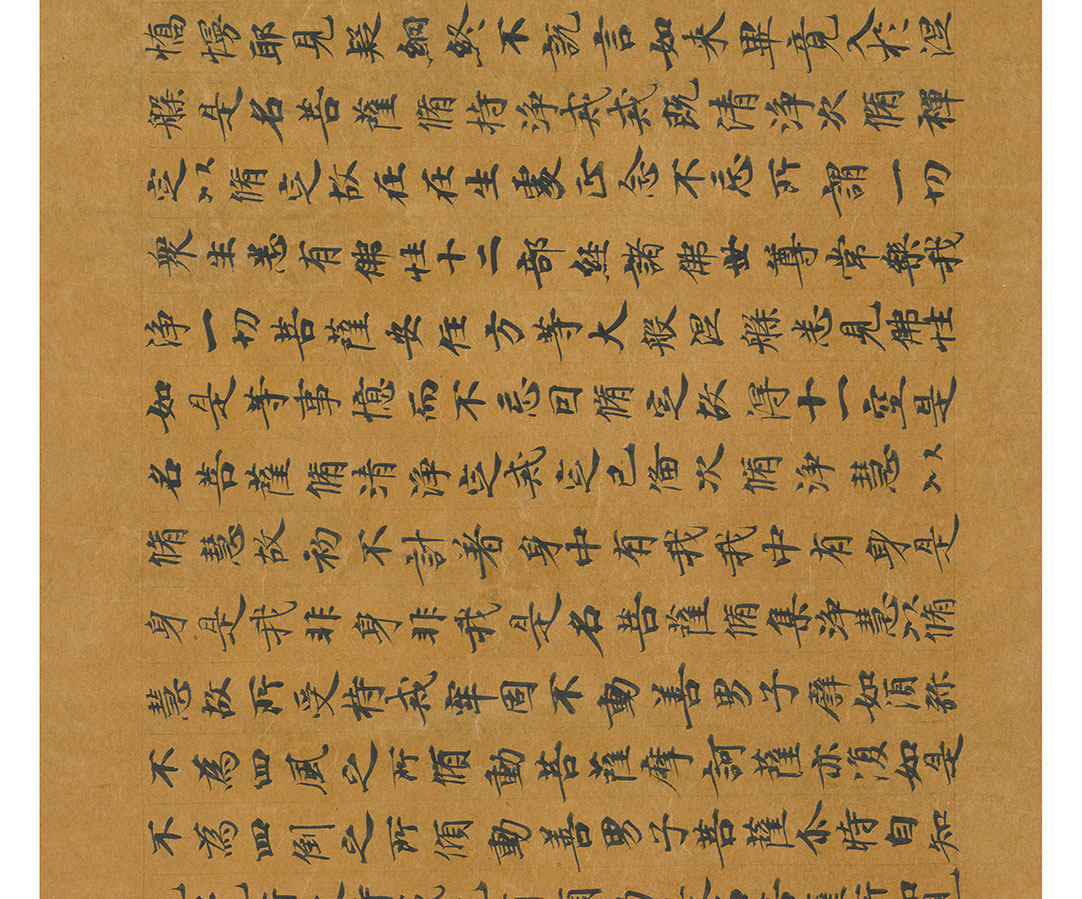 憍慢耶見疑網終不說言如来畢竟入於涅
槃是名菩薩脩持淨戒戒既清淨次脩禪
定以脩定故在在生處正念不忘所謂一切
衆生悉有佛性十二部經諸佛世尊常樂我
淨一切菩薩安住方等大般涅槃悉見佛性
如是等事憶而不忘因脩定故得十一空是
名菩薩脩清淨定戒定已備次脩淨慧以
脩慧故初不計着身中有我我中有身是
身是我非身非我是名菩薩脩集淨慧以脩
慧故所受持戒牢固不動善男子譬如須弥
不為四風之所傾動菩薩摩訶薩亦復如是
不為四倒之所傾動善男子菩薩尒時自知